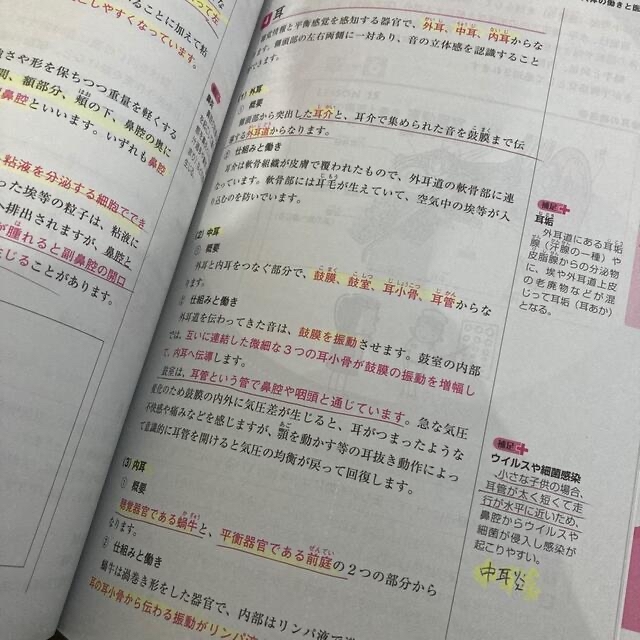 って左
ことに加えて粘
こしやすくなっています。
さや形を保ちつつ重量を軽くする
間、額部分、頬の下、鼻腔の奥に
鼻腔といいます。いずれも鼻腔
粘液を分泌する細胞ででき
った埃等の粒子は、粘液に
へ排出されますが、鼻腔と
が腫れると副鼻腔の開口
生じることがあります。
4 耳
聴覚情報と平衡感覚を感知する器官で、外耳、中耳、内耳からな
ます。側頭部の左右両側に一対あり、音の立体感を認識すること
できます。
(1) 外耳
① 概要
側頭部から突出した耳介と、耳介で集められた音を鼓膜まで伝
導する外耳道からなります。
② 仕組みと働き
耳介は軟骨組織が皮膚で覆われたもので、外耳道の軟骨部に連
なっています。軟骨部には耳毛が生えていて、空気中の埃等が入
り込むのを防いでいます。
(2) 中耳
① 概要
外耳と内耳をつなぐ部分で、鼓膜、鼓室、耳小骨、耳管からな
ります。
② 仕組みと働き
外耳道を伝わってきた音は、鼓膜を振動させます。鼓室の内部
では、互いに連結した微細な3つの耳小骨が鼓膜の振動を増幅し
て、内耳へ伝導します。
鼓室は、耳管という管で鼻腔や咽頭と通じています。急な気圧
変化のため鼓膜の内外に気圧差が生じると、耳がつまったような
不快感や痛みなどを感じますが、顎を動かす等の耳抜き動作によっ
て意識的に耳管を開けると気圧の均衡が戻って回復します。
(3) 内耳
① 概要
聴覚器官である蝸牛と、平衡器官である前庭の2つの部分から
なります。
② 仕組みと働き
蝸牛は渦巻き形をした器官で、内部はリンパ液で
の耳小骨から伝わる振動がリンパ液
の働きと医
補足
耳垢
外耳道にある耳垢
腺(汗腺の一種)や
皮脂腺からの分泌物
に、埃や外耳道上皮
の老廃物などが混
じって耳垢(耳あか)
となる。
補足
ウイルスや細菌感染
小さな子供の場合、
耳管が太く短くて走
行が水平に近いため、
鼻腔からウイルスや
細菌が侵入し感染が
起こりやすい。
中耳炎